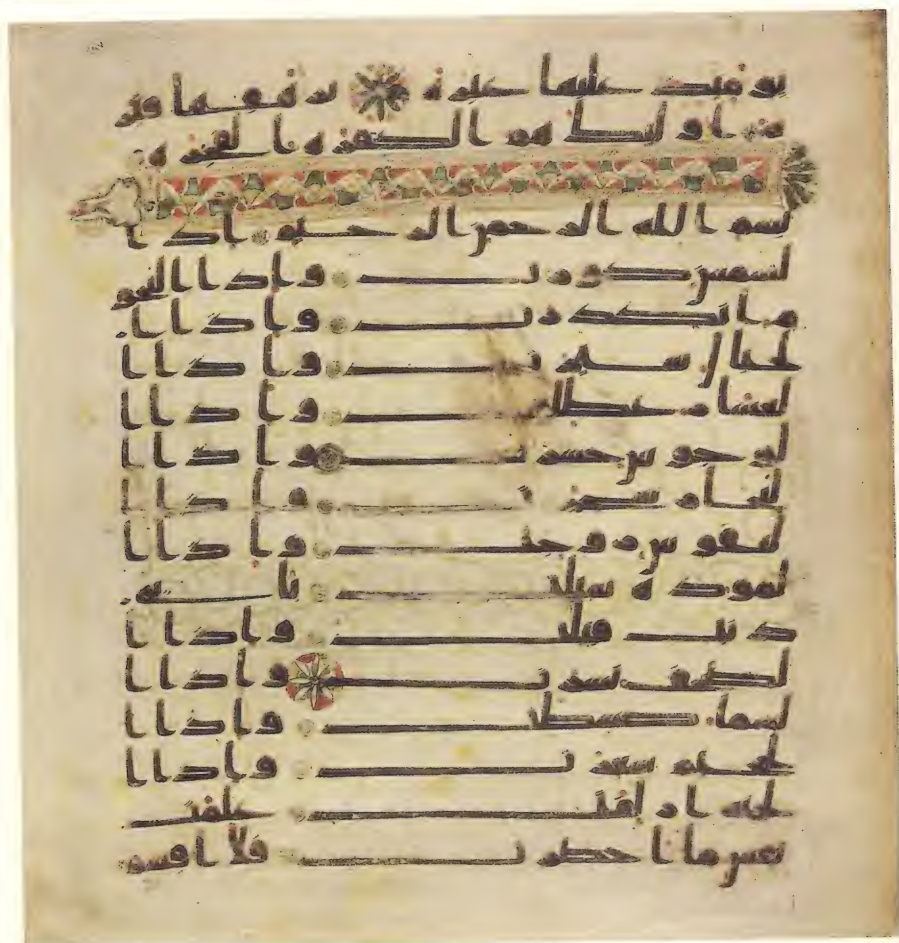 يومئذ عليها غبرة ترهقها قتر
ة اولئك هم الكفرة الفجرة
بسم الله الرحمن الرحيم اذا ا
لشمس كورت واذا النجو
م انكدرت واذا ا
لجبال سيرت واذا ا
لعشار عطلت واذا ا
لوحوش حشرت واذا ا
لبحار سجرت واذا ا
لنفوس زوجت واذا ا
لمودة سئلت باي
ذنب قتلت واذا ا
لصحف نشرت واذا ا
لسما كشطت واذا ا
لجحيم سعرت واذا ا
لجنة ازلفت علمت
نفس ما احضرت فلا اقسم